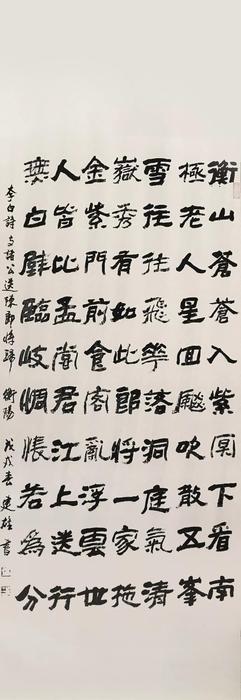 衡山蒼蒼入紫冥下看南
極老人星回飈吹散五峯
雪往往飛華落洞庭氣清
嶽秀有如此郎將一家拖
金紫門前食客亂浮雲世
人皆比孟嘗君江上送行
無白璧臨岐惆悵若為分
李白詩与諸公送陳郎將歸衡陽 戊戌春建雄書